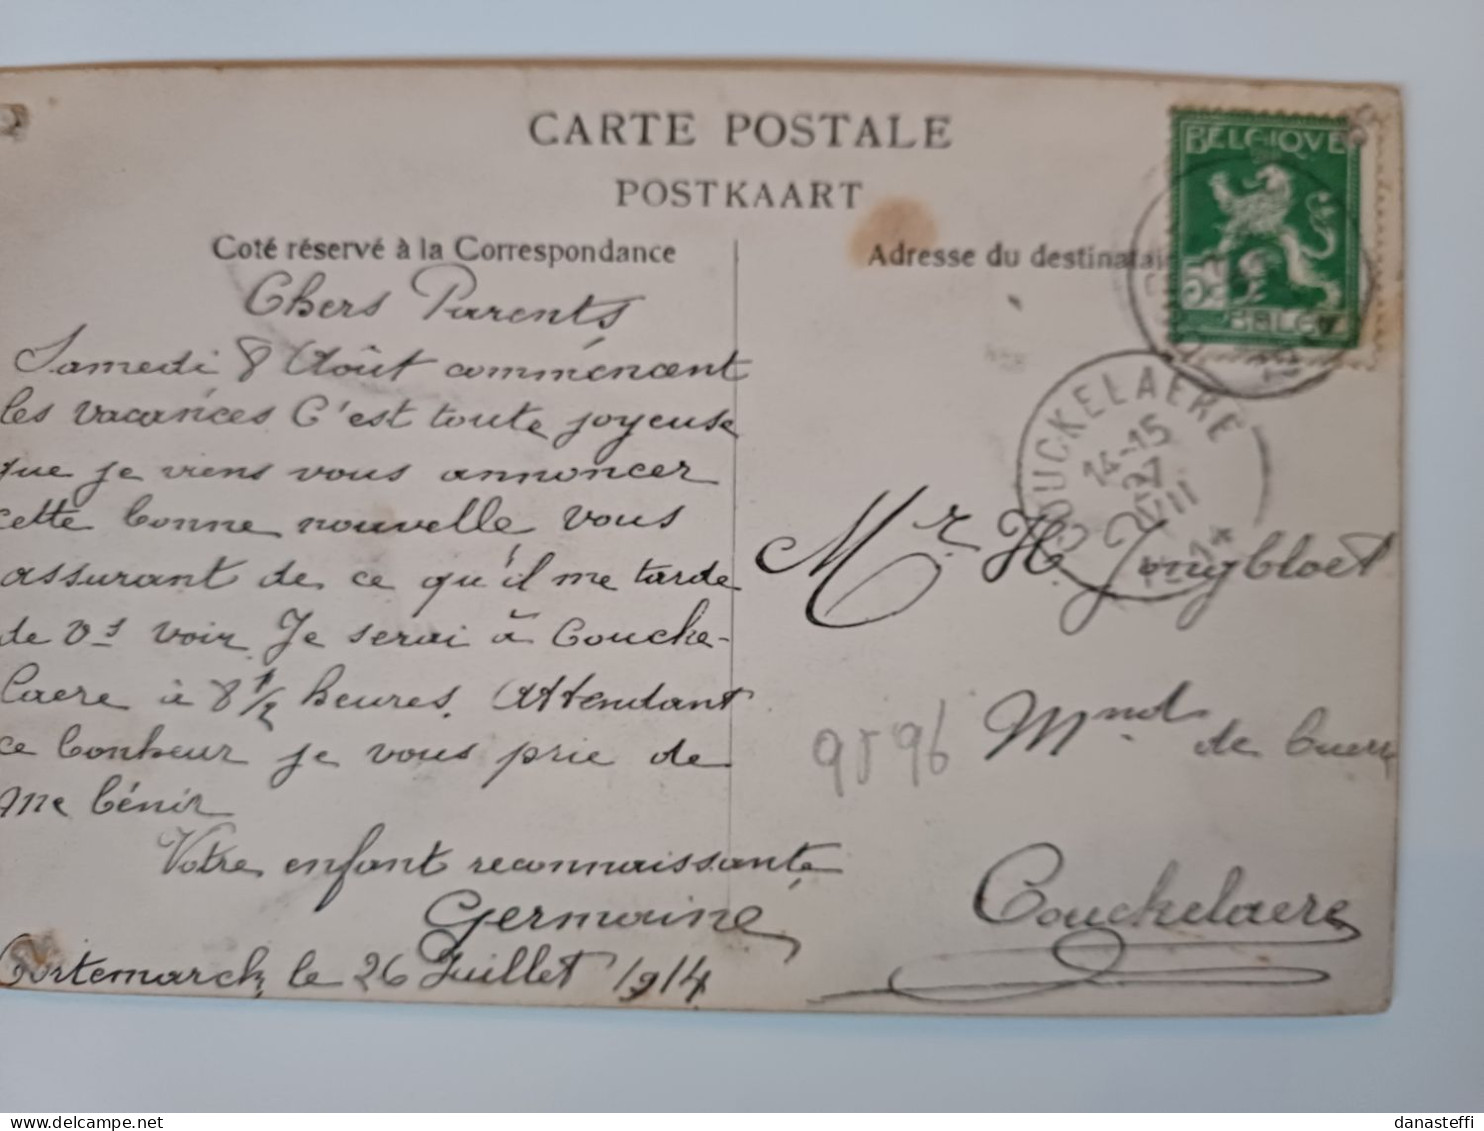 CARTE POSTALE
POSTKAART
Coté réservé à la Correspondance
Chers Parents
Samedi 8 Août commencent
les vacances C'est toute joyeuse
que je viens vous annoncer
cette bonne nouvelle vous
assurant de ce qu'il me tarde
de vs voir Je serai à Coucke-
laere à 8 1/2 heures. Attendant
ce bonheur je vous prie de
me bénir
Votre enfant reconnaissante
Germaine
Cortemarck, le 26 Juillet 1914
Adresse du destinatai
BELGIQUE
5
BELG
OUCKELAERE
14-15
27
VII
Mr H. Jongbloet
9596 Mnd de
Couckelaere
danasteffi